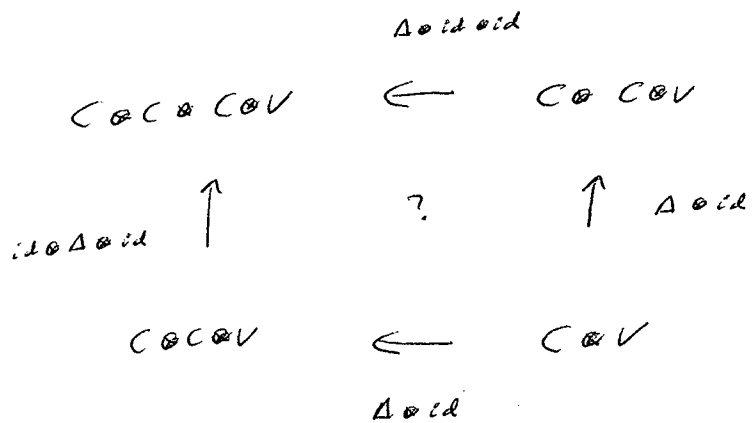 Δ⊗id⊗id
C⊗C⊗C⊗V ← C⊗C⊗V
id⊗Δ⊗id ↑ ? ↑ Δ⊗id
C⊗C⊗V ← C⊗V
Δ⊗id